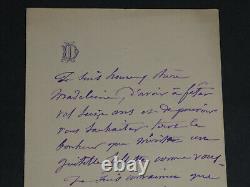 D
Je suis heureux, chère
Madeleine, d'avoir à fêter
vos seize ans et de pouvoir
vous souhaiter tout le
bonheur que mérite un
comme vous
Je suis convaincu que